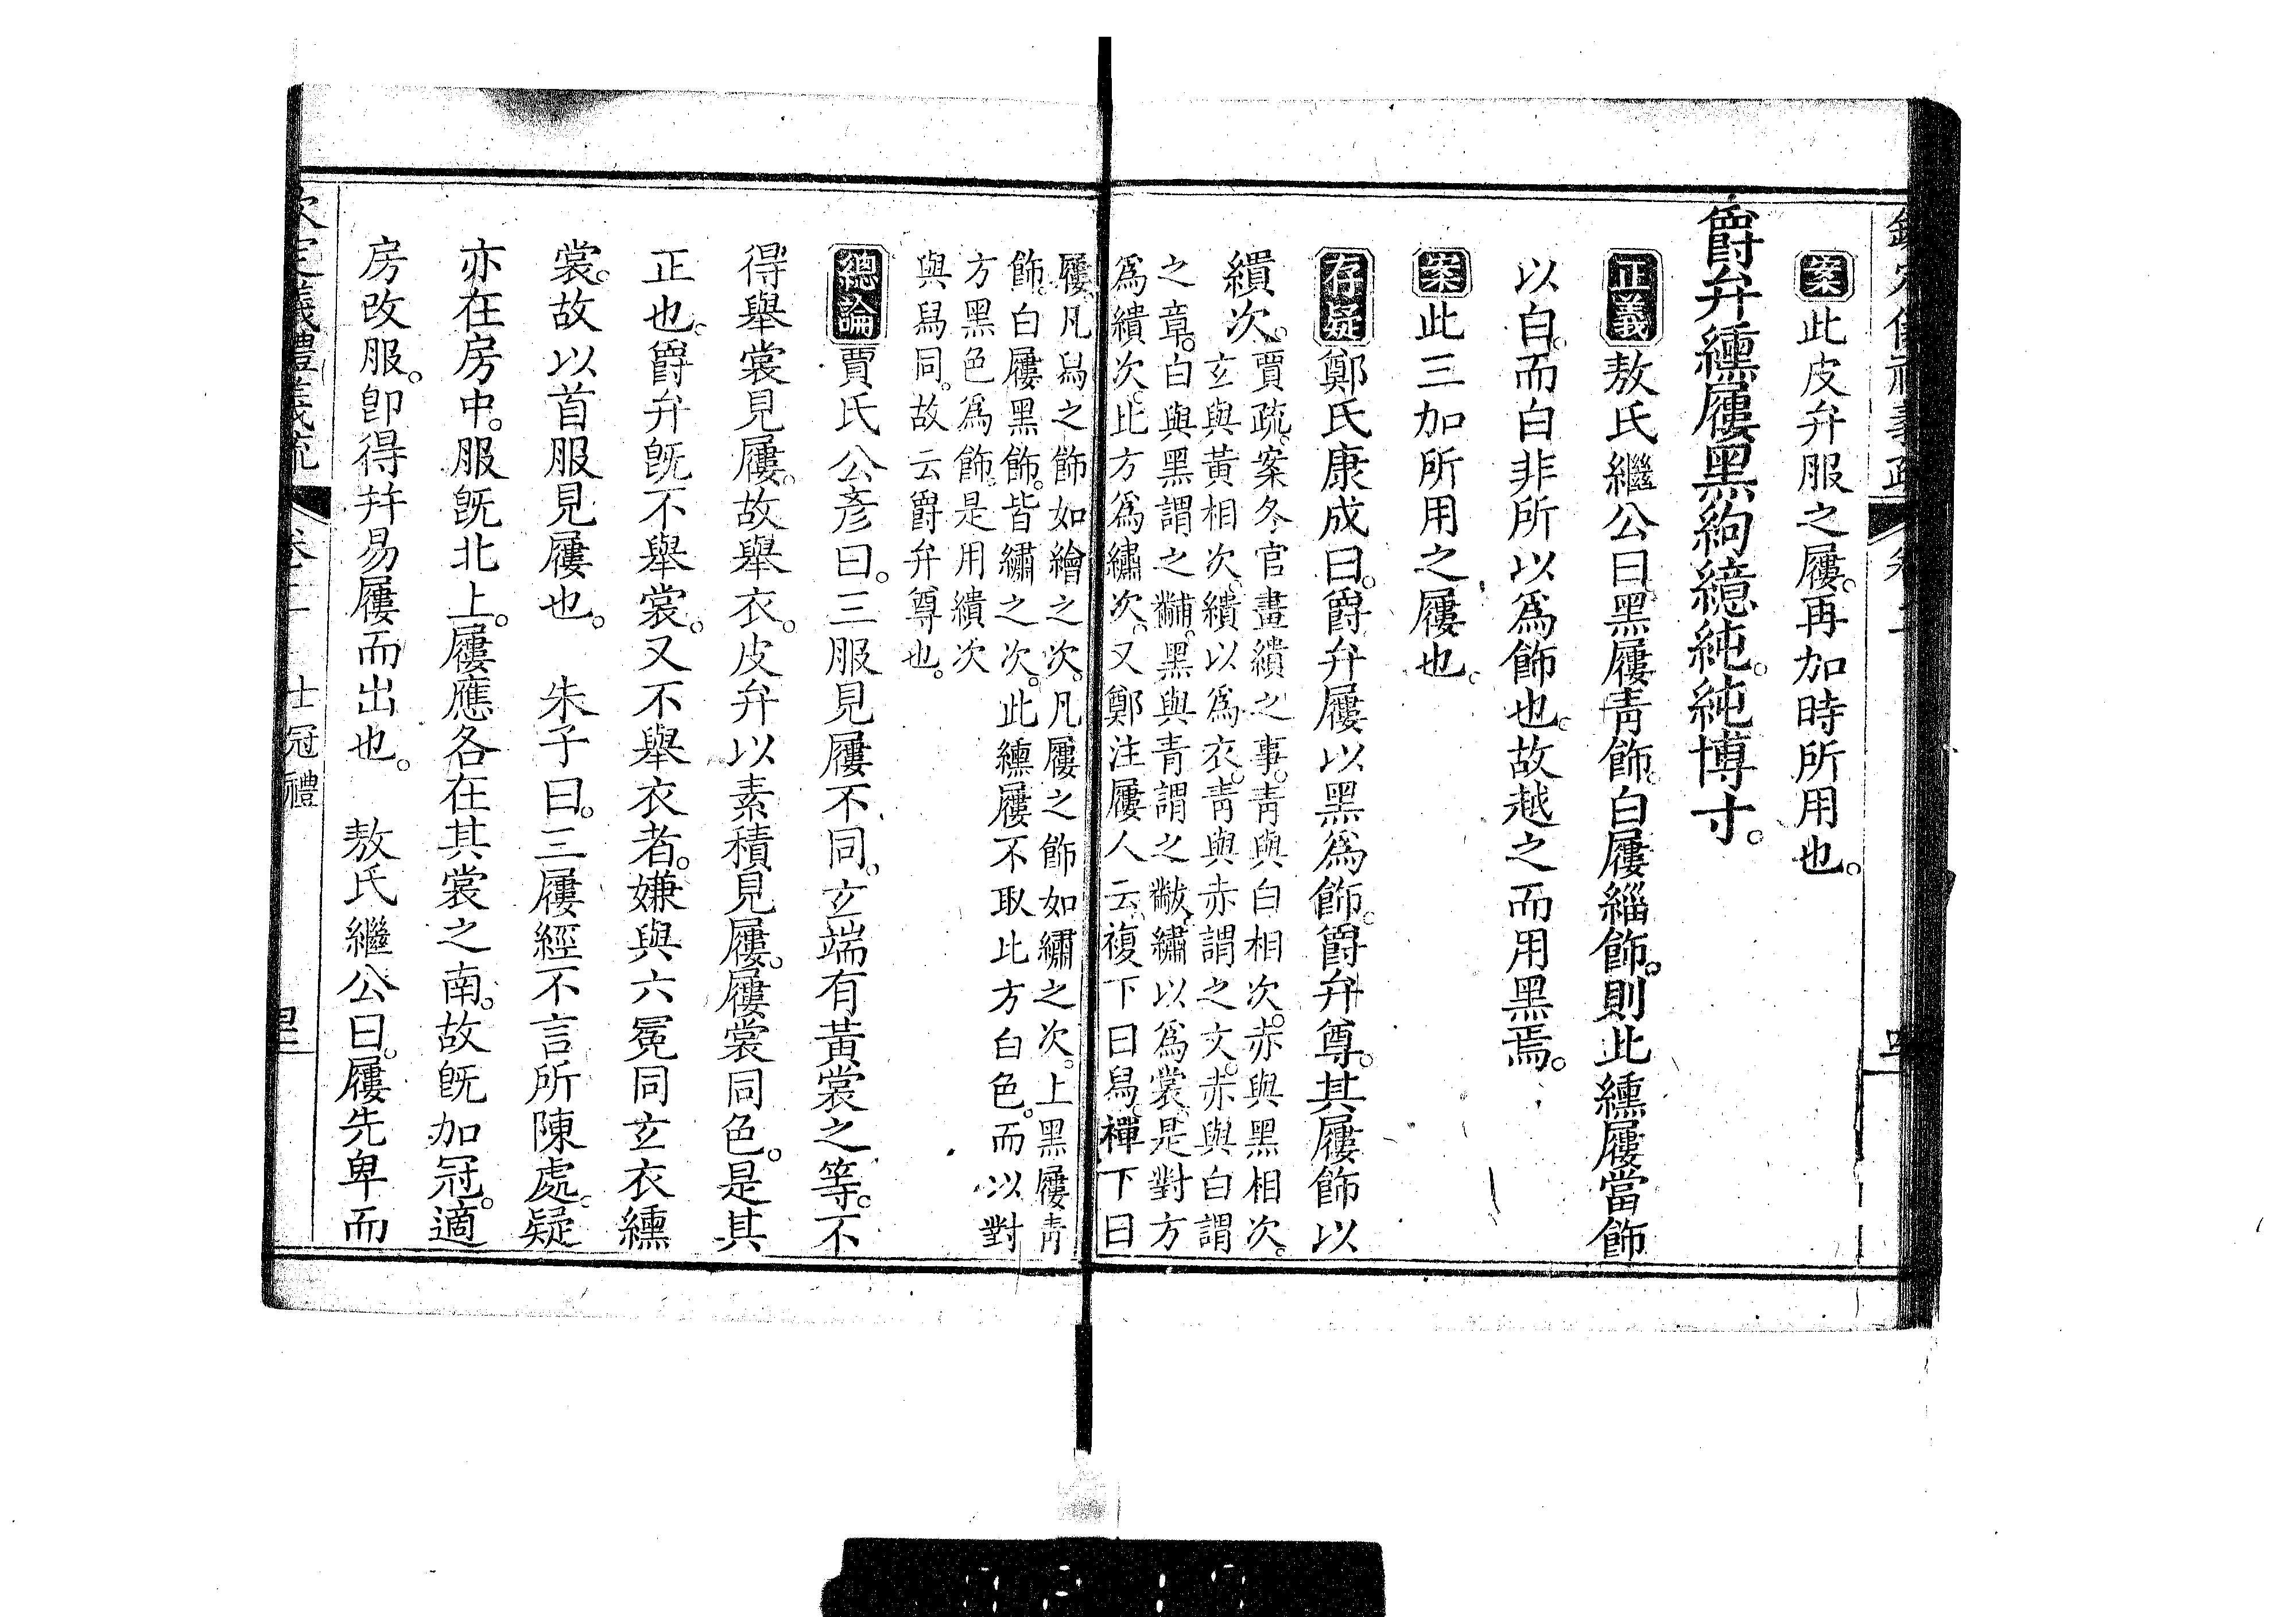 案此皮弁服之屨。再加時所用也。
爵弁纁屨黑絇繶純。純博寸。
正義敖氏繼公曰黑屨靑飾。白屨緇飾。則此纁屨當飾
以白。而白非所以爲飾也。故越之而用黑焉。
案此三加所用之屨也。
存疑鄭氏康成曰。爵弁屨以黑爲飾。爵弁尊。其屨飾以
繢次。賈疏。案冬官畫繢之事。靑與白相次。赤與黑相次。
玄與黃相次。繢以爲衣。靑與赤謂之文。赤與白謂
之章。白與黑謂之黼。黑與靑謂之黻。繡以爲裳。是對方
爲繢次。比方爲繡次。又鄭注屨人云。複下曰舃。禪下曰
屨。凡舃之飾如繪之次。凡屨之飾如繡之次。上黑屨靑
飾。白屨黑飾。皆繡之次。此纁屨不取比方白色。而以對
方黑色爲飾。是用繢次
與舃同。故云爵弁尊也。
總論賈氏公彥曰。三服見屨不同。玄端有黃裳之等。不
得舉裳見屨。故舉衣。皮弁以素積見屨。屨裳同色。是其
正也。爵弁旣不舉裳。又不舉衣者。嫌與六冕同玄衣纁
裳。故以首服見屨也。 朱子曰。三屨經不言所陳處。疑
亦在房中。服旣北上。屨應各在其裳之南。故旣加冠。適
房改服。卽得幷易屨而出也。 敖氏繼公曰。屨先卑而
欽定義禮義疏 卷二 士冠禮